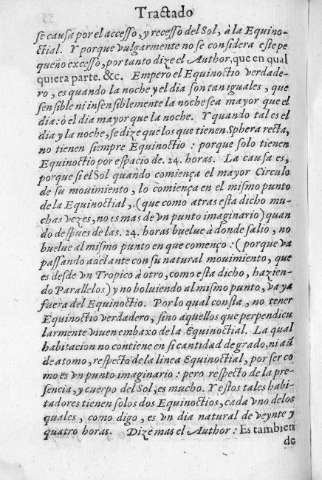 Tractado
se causa por el accesso, y recesso del Sol, à la Equino-
ctial. Y porque vulgarmente no se considera este pe
queño excesso, por tanto dize el Author, que en qual
quiera parte. &c. Empero el Equinoctio verdade-
ro, es quando la noche y el dia son tan iguales, que
sensible ni insensiblemente la noche sea mayor que el
dia: ò el dia mayor que la noche. Y quando tal es el
dia y la noche, se dize que los que tienen Sphera recta,
no tienen siempre Equinoctio: porque solo tienen
Equinoctio por espacio de. 24. horas. La causa es,
porque si el Sol quando comiença el mayor Circulo
de su mouimiento, lo comiença en el mismo punto
de la Equinoctial, (que como atras esta dicho mu-
chas vezes, no es mas de vn punto imaginario) quan
do despues de las. 24. horas buelue à donde salio, no
buelue al mismo punto en que començo: (porque va
passando adelante con su natural mouimiento, que
es desde vn Tropico à otro, como esta dicho, hazien-
do Parallelos) y no boluiendo al mismo punto, va ya
fuera del Equinoctio. Por lo qual consta, no tener
Equinoctio verdadero, sino aquellos que perpendicu
larmente viuen embaxo de la Equinoctial. La qual
habitacion no contiene en si cantidad de grado, ni aũ
de atomo, respecto de la linea Equinoctial, por ser co
mo es vn punto imaginario: pero respecto de la pre-
sencia, y cuerpo del Sol, es mucho. Y estos tales habi-
tadores tienen solos dos Equinoctios, cada vno de los
quales, como digo, es vn dia natural de veynte y
quatro horas. Dize mas el Author: Es tambien
de